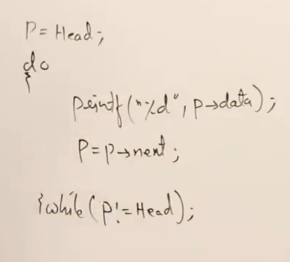 P = Head;
do
{
printf("%d", p→data);
P = p→next;
}while(p!=Head);